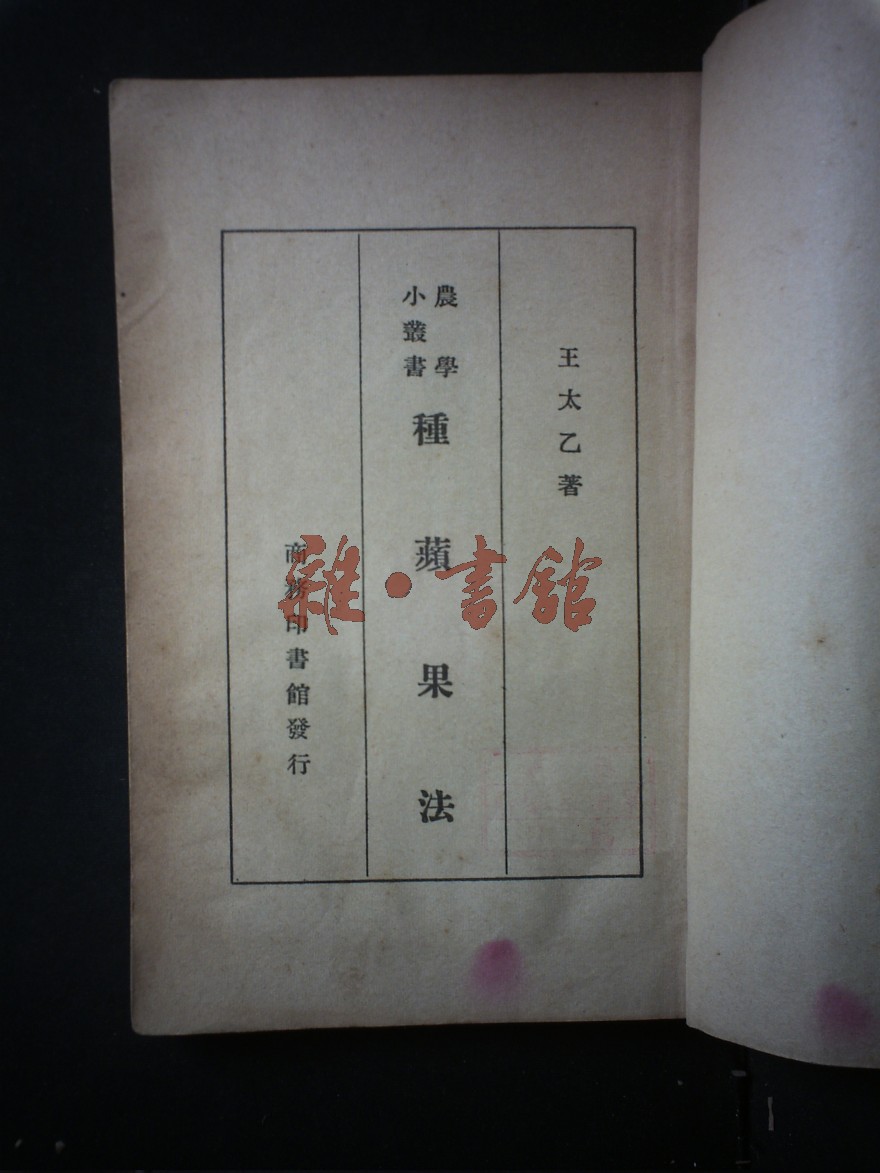 王太乙著
農學
小叢書
種蘋果法
商務印書館發行
雜·書館